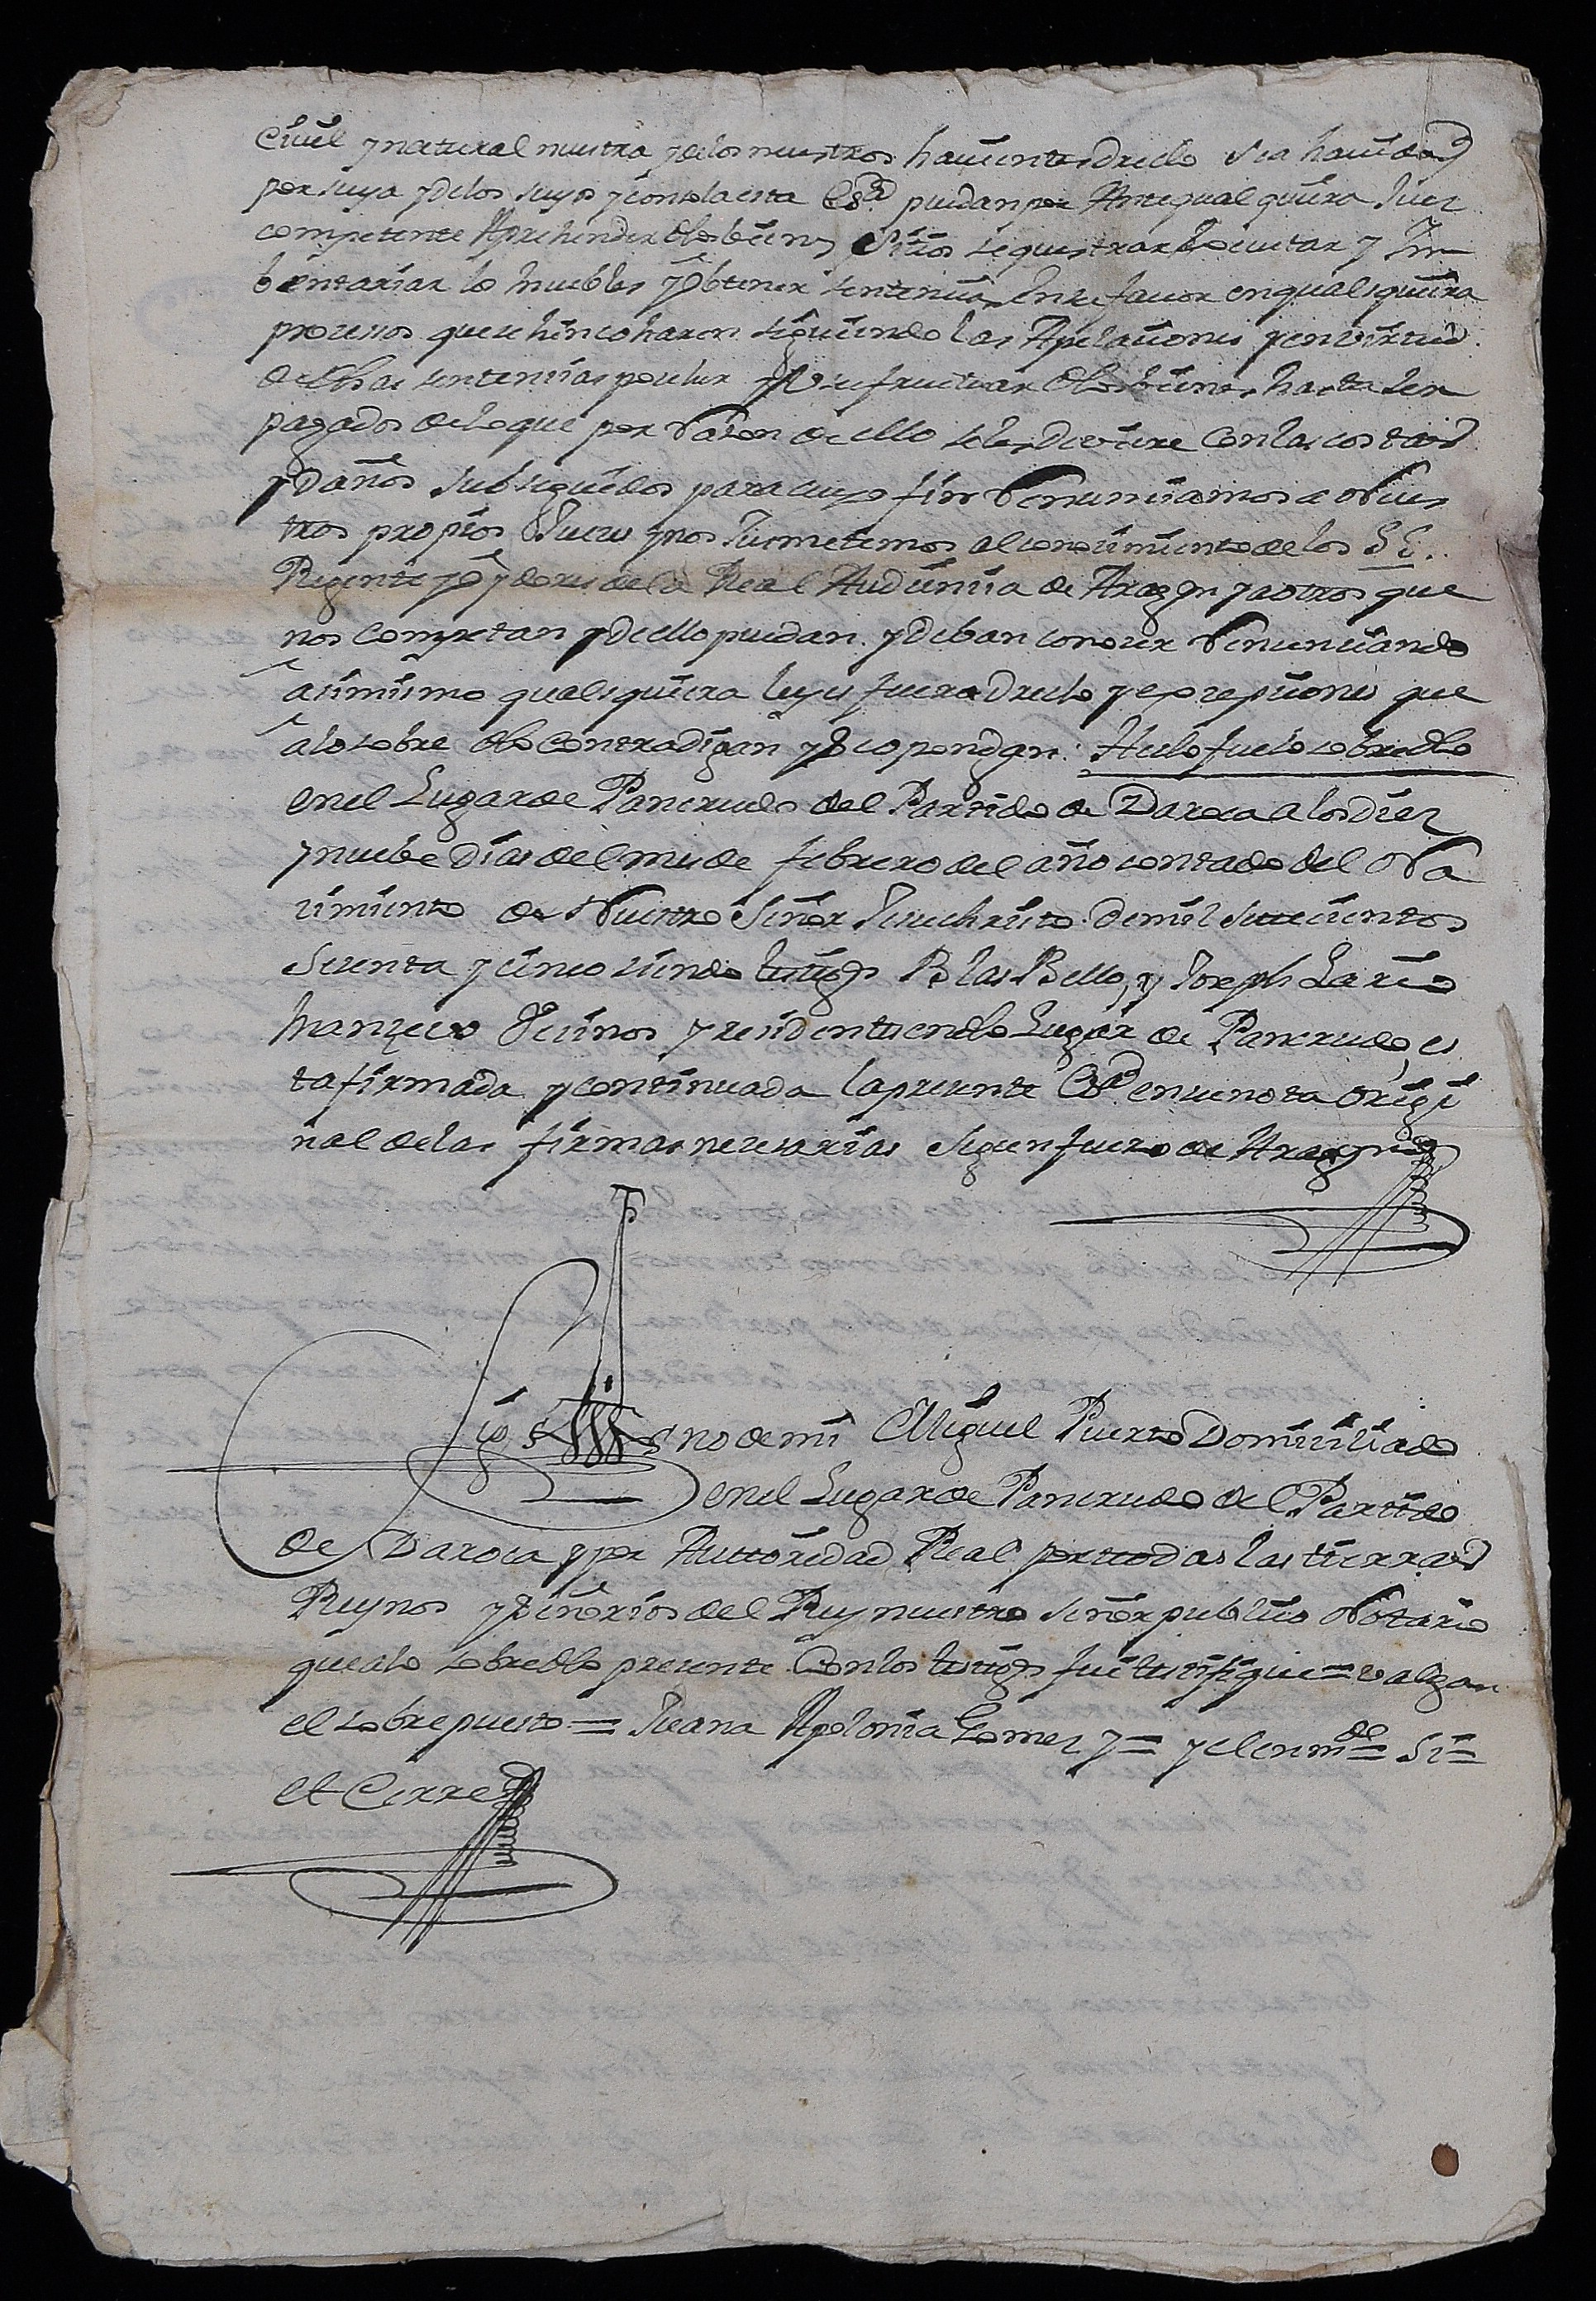 Civil y natural nuestra y delos nuestros havientes drecho sea havida
por suya y delos suyos y con sola esta Es.ra puedan Ante qual quiera Juez
competente Aprehender dhos bienes Sitios sequestrar Executar y Im
bentariar lo muebles y Obtener sentencias en su favor en quales quiera
procesos que se hincoharen siguiendo las Apelaciones y en virtud
de dhas sentencias poseher y Usufructuar dhos bienes hasta ser
pagados de lo que por Razon de ello seles deviere con las costas
y Daños subseguidos para cuyo fin Renunciamos a Nues
tros propios Jueces y nos Jusmetemos al conocimiento de los S S.
Regente y Oydores de la Real Audiencia de Aragon y a otros que
nos Competan y De ello puedan y Deban conocer Renunciando
asimismo quales quiera leyes fuero drecho y excepciones que
alo sobre dho Contradigan y Se opongan: Hecho fue lo sobredho
en el Lugar de Pancrudo del Partido de Daroca a los Diez
y nuebe Dias del mes de febrero del año contado del Na
cimiento de Nuestro Señor Jesuchristo de mil setecientos
sesenta y cinco siendo testigos Blas Bello, y Joseph Lario
Mancevo Vecinos y residentes en dho Lugar de Pancrudo, es
ta firmada y continuada la presente Es.ra en su nota origi
nal de las firmas necesarias segun fuero de Aragon
Sig no de mi Miguel Puerto Domiciliado
en el Lugar de Pancrudo del Partido
de Daroca y por Auttoridad Real por todas las tierras
Reynos y Señorios del Rey nuestro señor publico Notario
que alo sobredho presente Con los testigos fui testifique = valgan
el sobrepuesto = Juana Apolonia Gomez y = y el enm.do = Si =
et Cerre